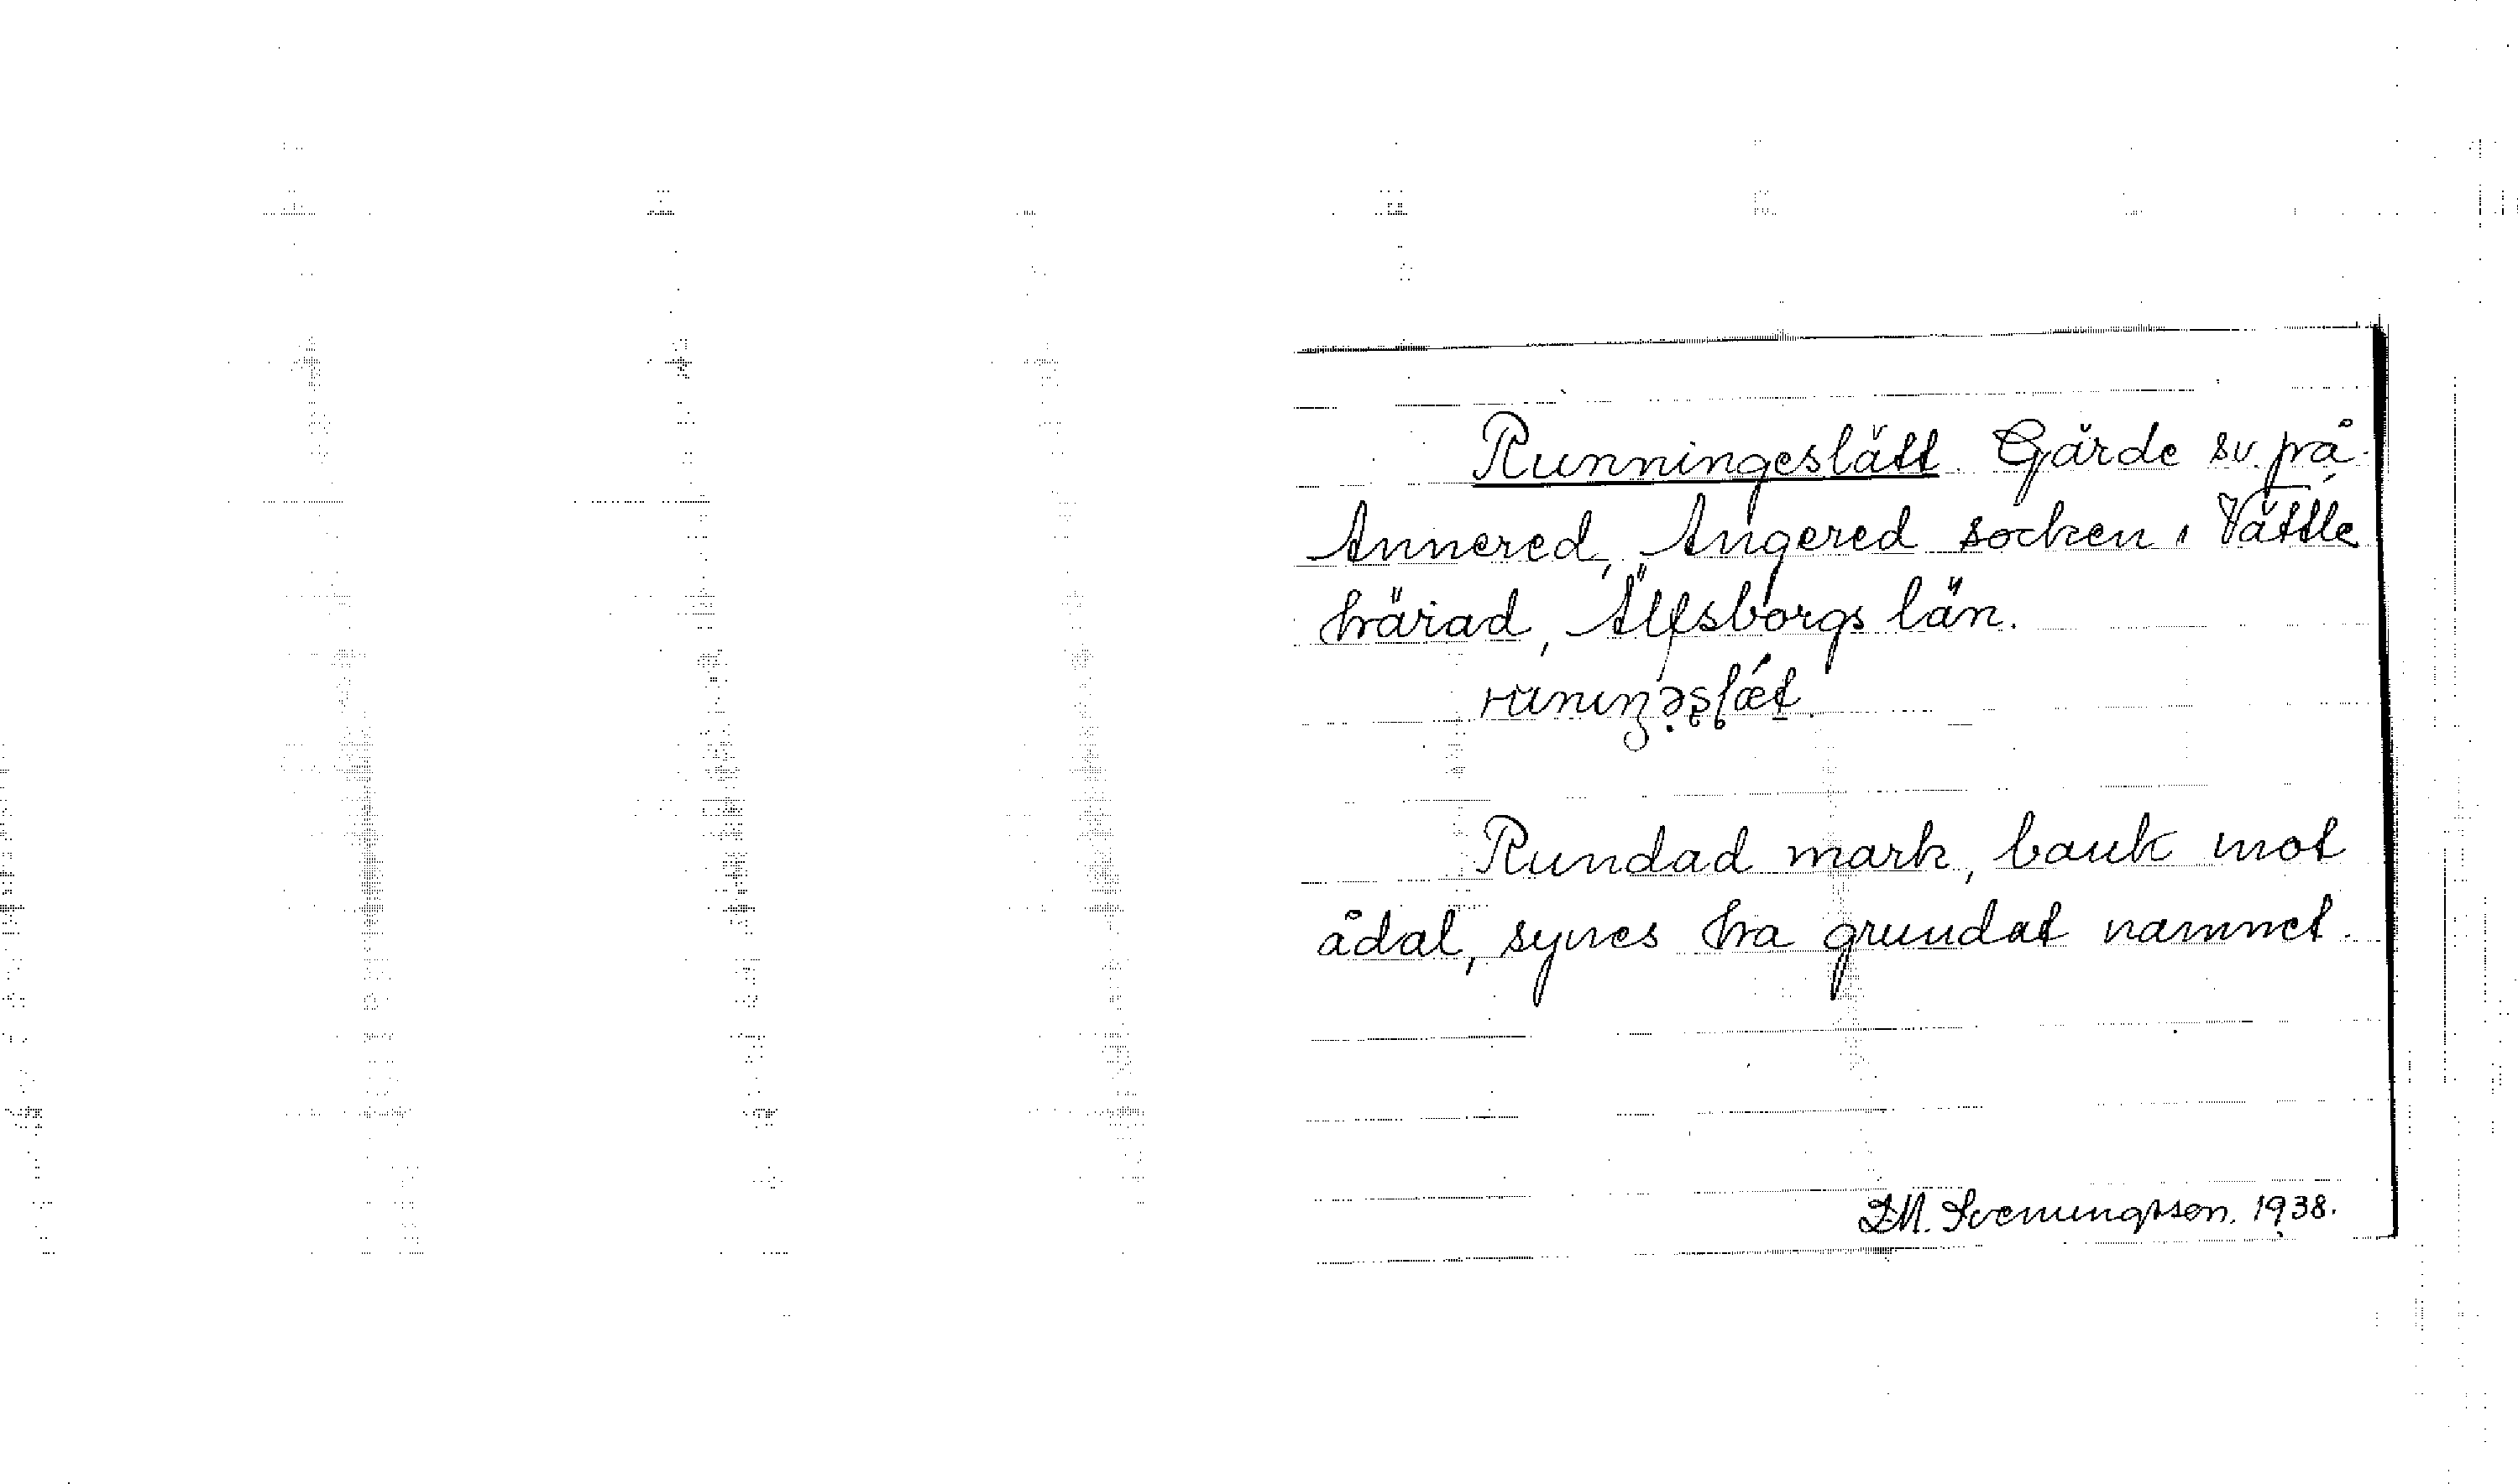 Runningeslätt. Gärde sv. på
Annered, Angered socken i Vättle
härad, Älfsborgs län.
runıŋəslǽt.
Rundad mark, bank mot
ådal, synes ha grundat namnet.
D.M. Svenungsson. 1938.